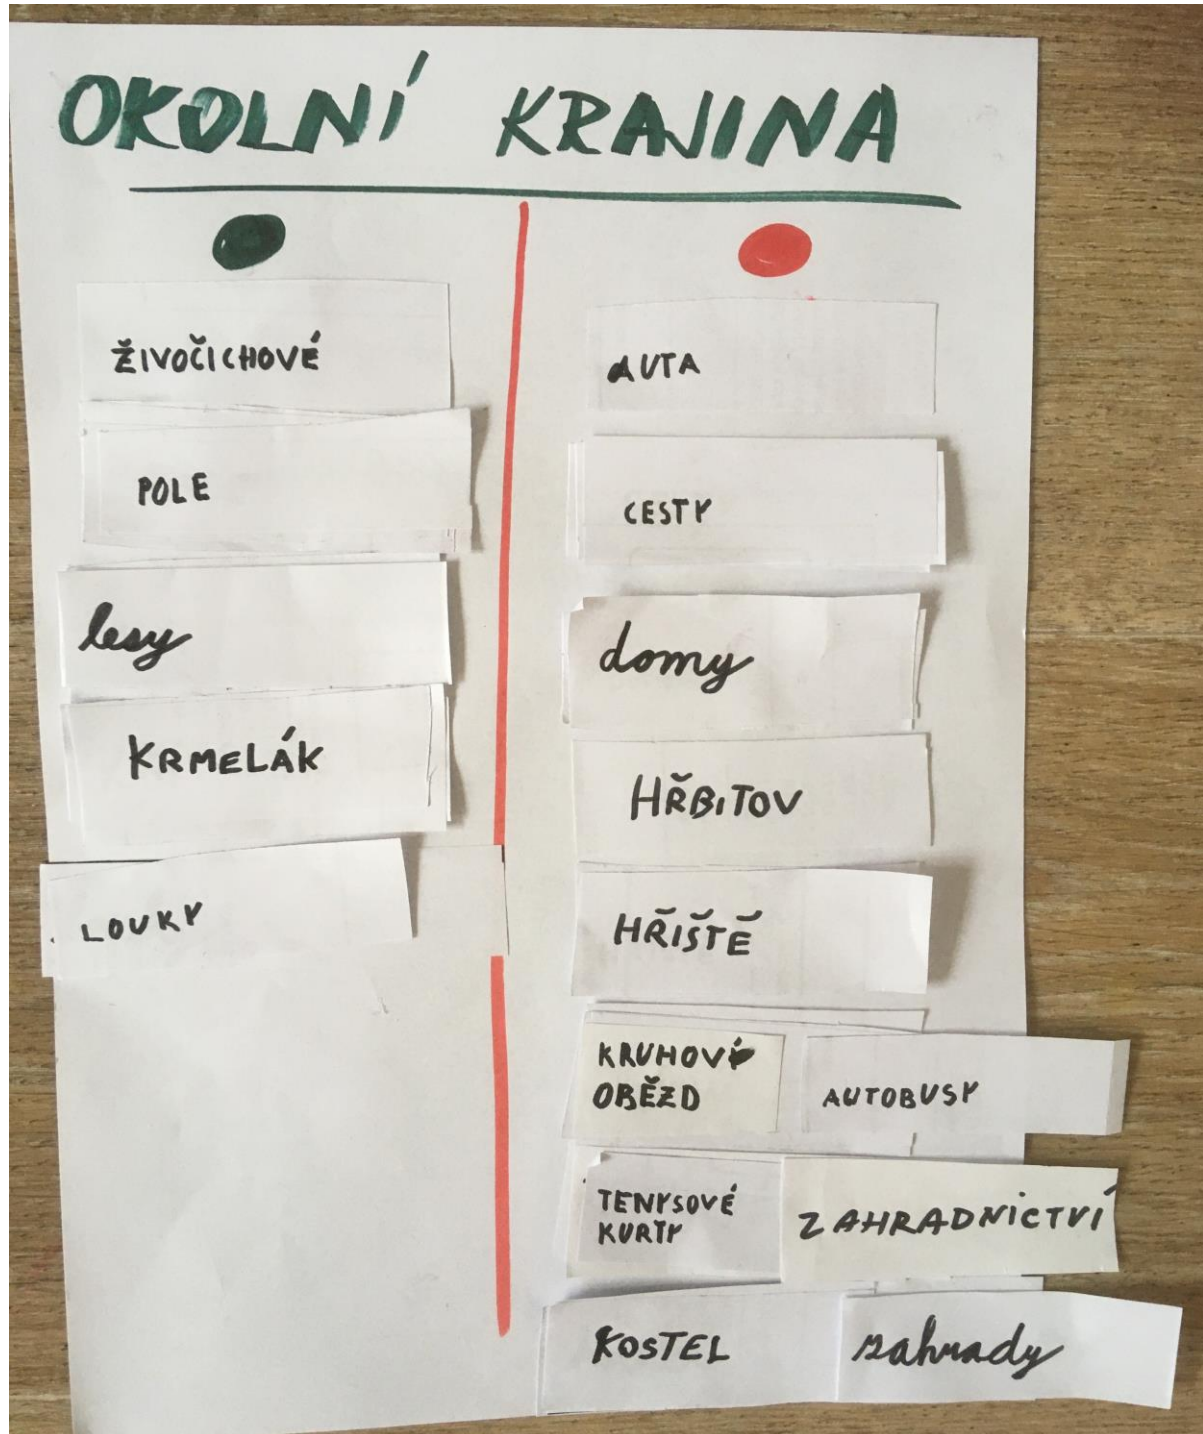 OKOLNÍ KRAJINA
ŽIVOČICHOVÉ
POLE
lesy
KRMELÁK
LOUKY
AUTA
CESTY
domy
HŘBITOV
HŘIŠTĚ
KRUHOVÝ
OBĚZD
AUTOBUSY
TENYSOVÉ
KURTY
ZAHRADNICTVÍ
KOSTEL
zahrady